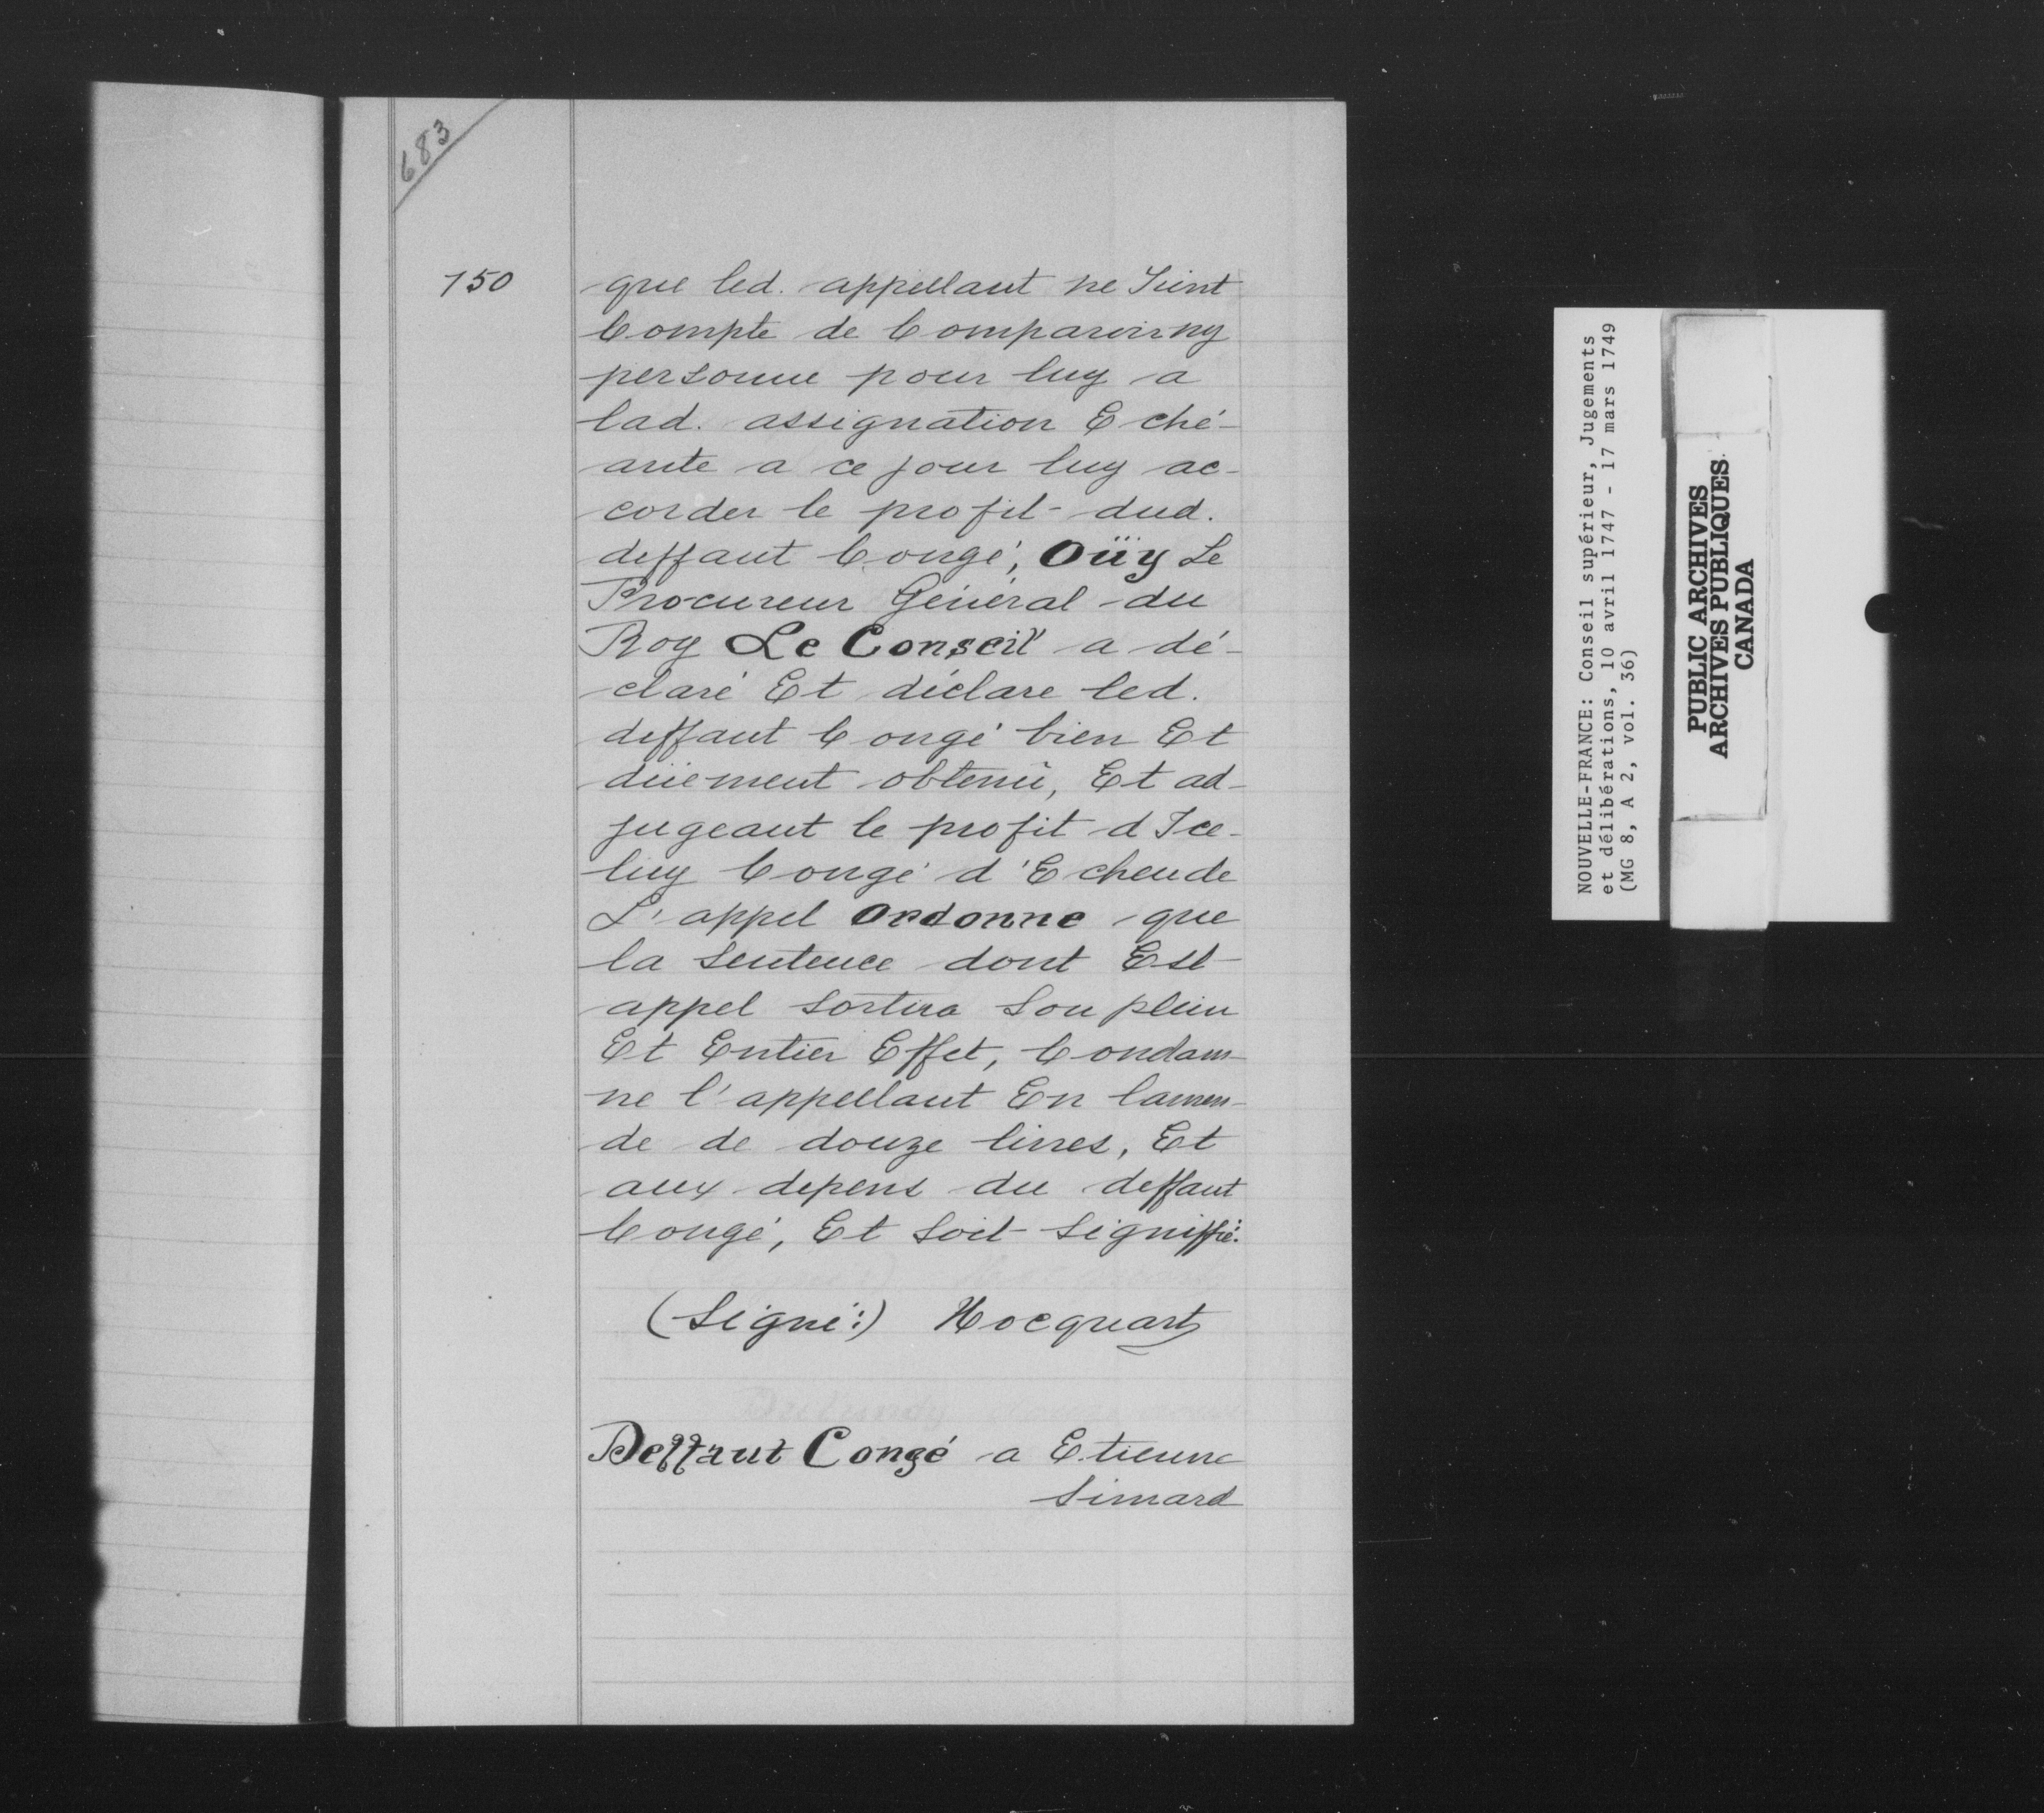 683
150
que led. appellant ne Tient
Compte de Comparoir ny
personne pour luy a
lad. assignation Eché-
ante a ce jour luy ac-
corder le profit dud.
deffaut Congé, Oüy Le
Procureur Général du
Roy Le Conseil a dé-
claré Et déclare led.
deffaut Congé bien Et
düement obtenü, Et ad-
jugeant le profit d Ice-
luy Congé d'Echeu de
L'appel Ordonne que
la Sentence dont Est
appel Sortira Son plein
Et Entier Effet, Condam-
ne l'appellant En lamen-
de de douze livres, Et
aux depens du deffaut
Congé, Et Soit Signiffié.
(Signé:) Hocquart
Deffaut Congé a Etienne
Simard
NOUVELLE-FRANCE: Conseil supérieur, Jugements
et délibérations, 10 avril 1747 - 17 mars 1749
(MG 8, A 2, vol. 36)
PUBLIC ARCHIVES
ARCHIVES PUBLIQUES
CANADA